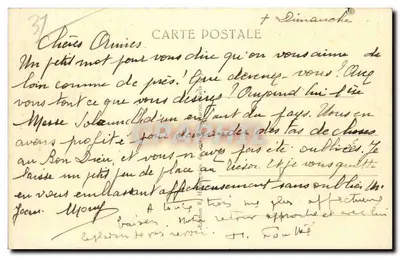 37
+ Dimanche
CARTE POSTALE
Chères Amies
Un petit mot pour vous dire qu'on vous aime de
loin comme de près! Que devenez-vous? Avez
vous tout ce que vous désirez? Aujourd'hui
Messe d'un enfant du pays. Nous en
avons profité pour demander des tas de choses
au Bon Dieu, et vous n'avez pas été oubliées. Je
laisse un petit peu de place au Trésor. Et je vous quitte
en vous embrassant affectueusement sans oublier
Jean.
A toutes trois mes plus affectueux
baisers. Notre retour approche et avec lui